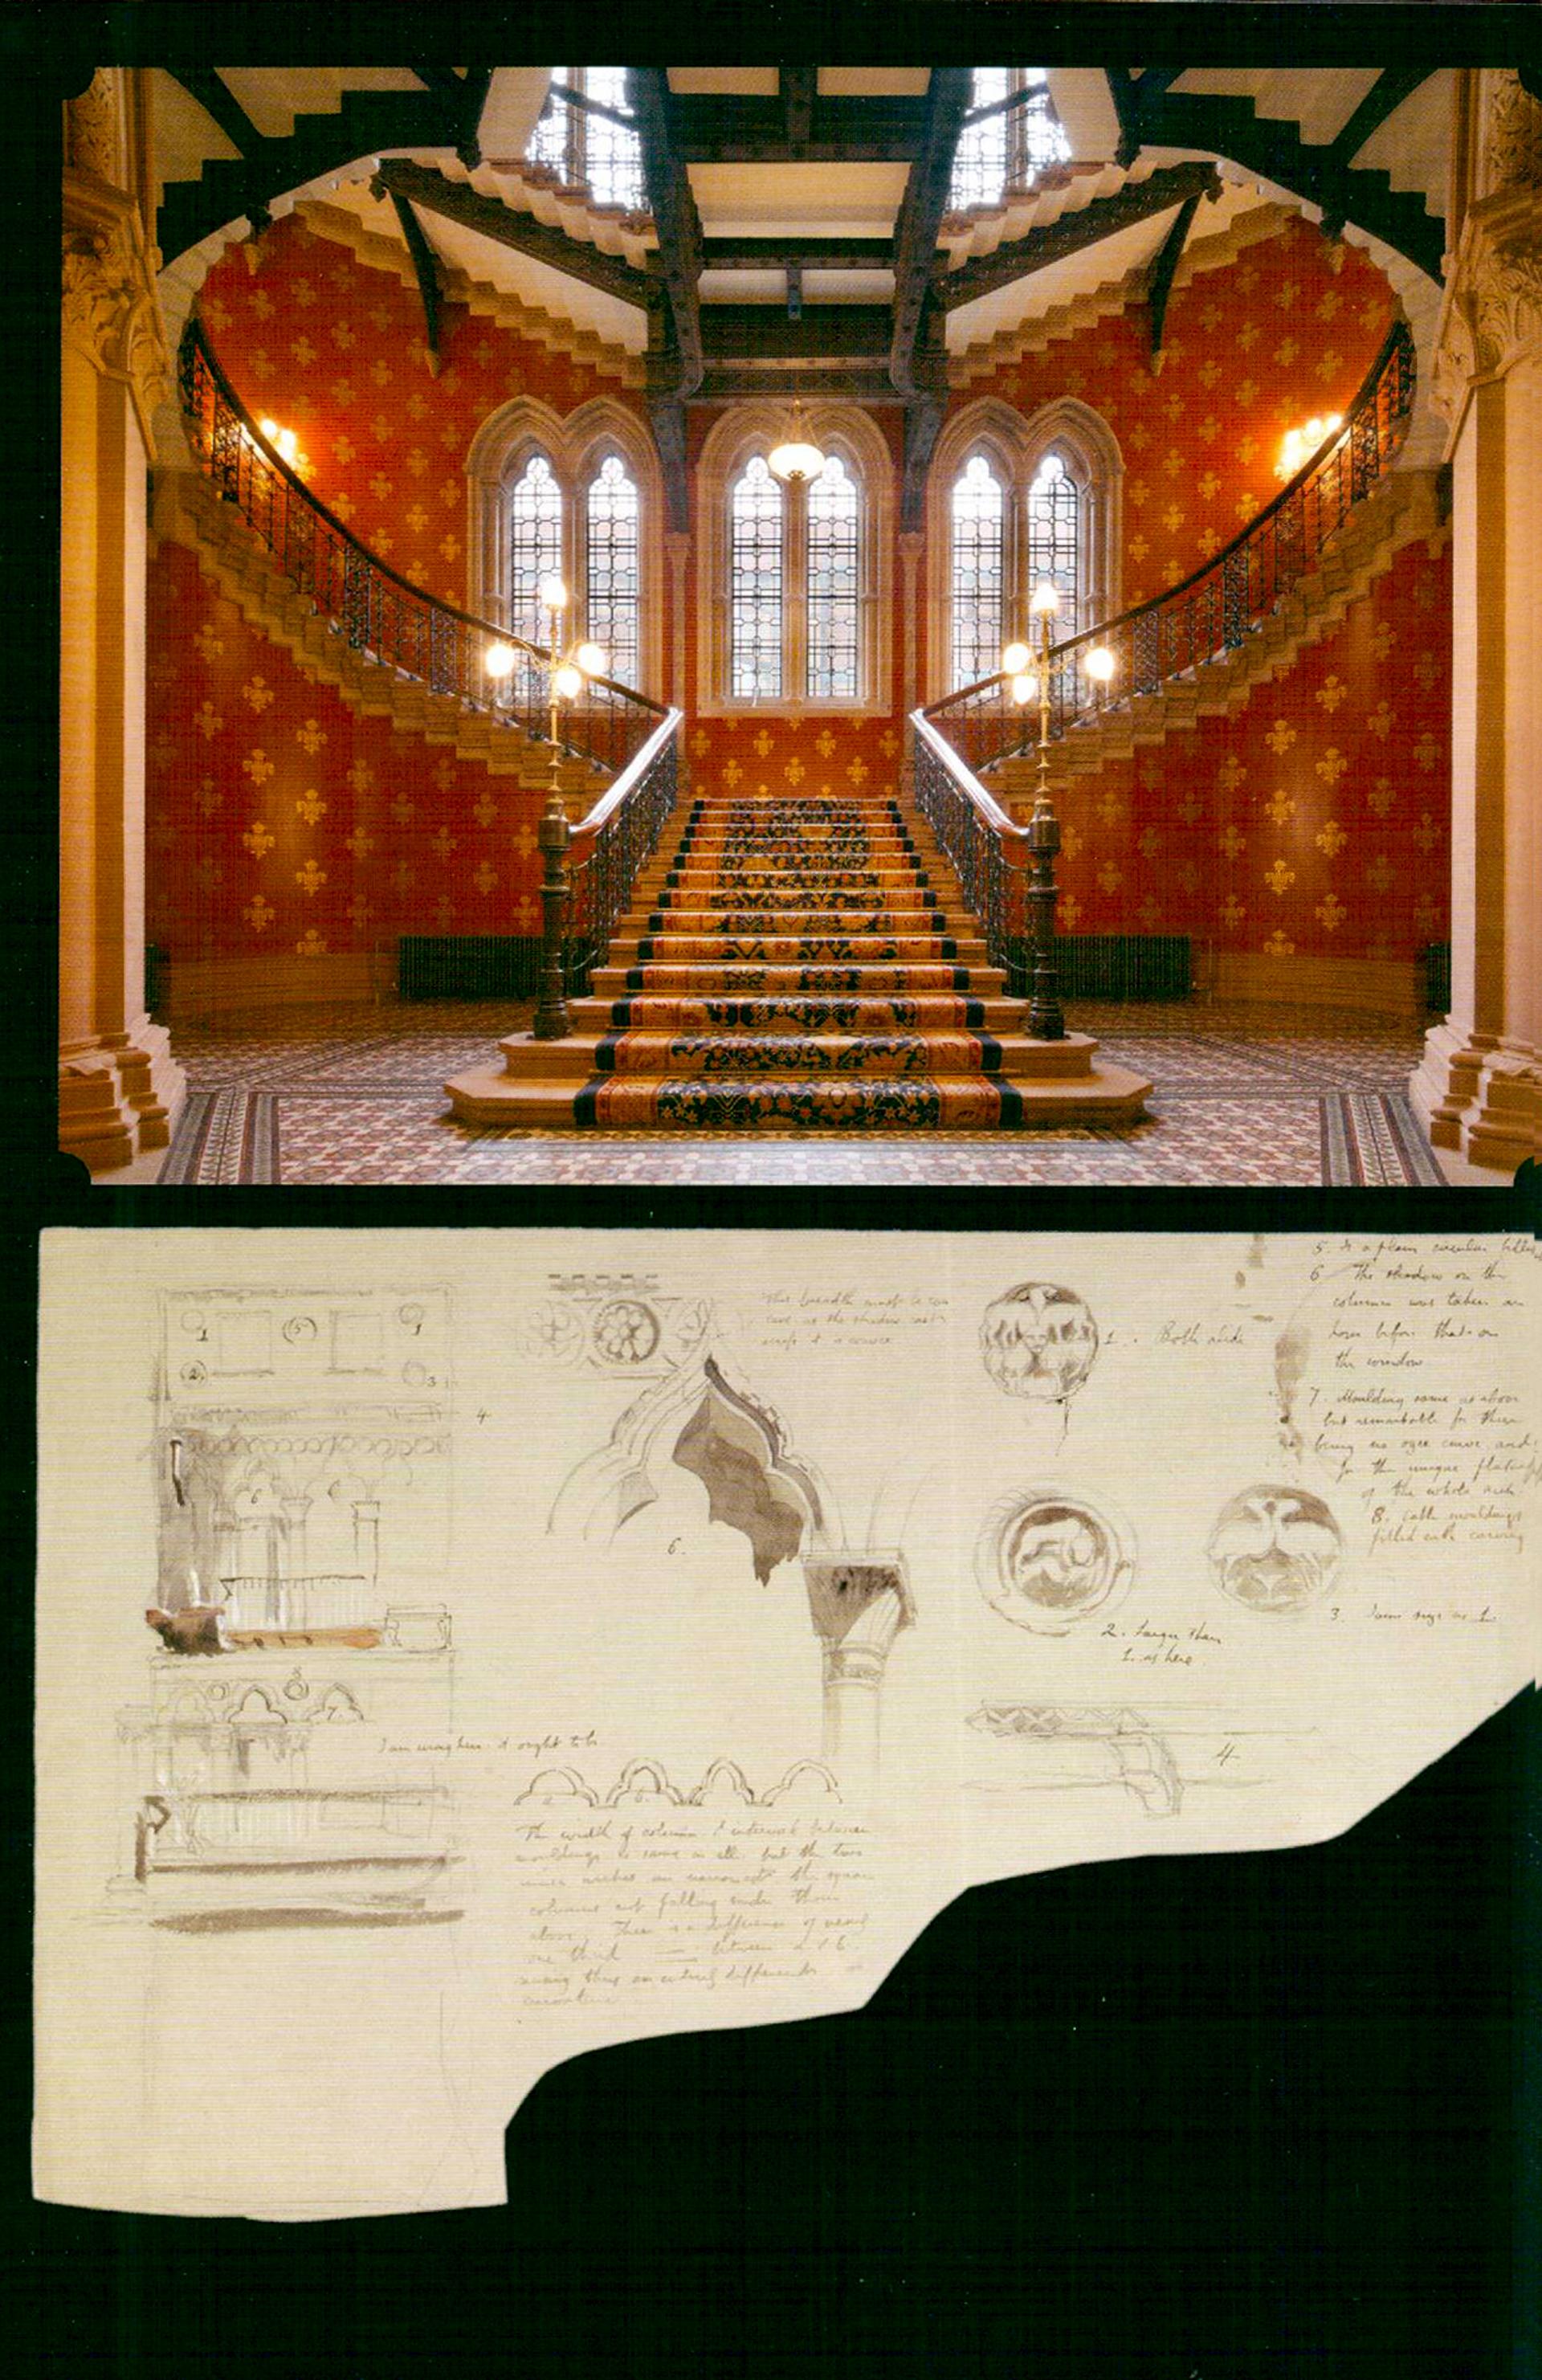 1
(5)
1
(2)
3
4
6
6
8
7.
I am wrong here. It ought to be
This breadth must be con
cave as the shadow cast
across it is a curve
6.
a
b.
The width of column & interval between
mouldings is same in all. but the two
inner arches are narrower the square
columns not falling under those
above. There is a difference of nearly
one third between a & b.
making thus an entirely different
1. Both alike
2. Larger than
1. as here
3. Same size as 1.
4
5. Is a plain circular
6 The shadow on the
columns was taken an
hour before that on
the window
7. Moulding same as above
but remarkable for there
being no ogee curve, and
for the unique flatness
of the whole arch.
8. Cable mouldings
filled with carving